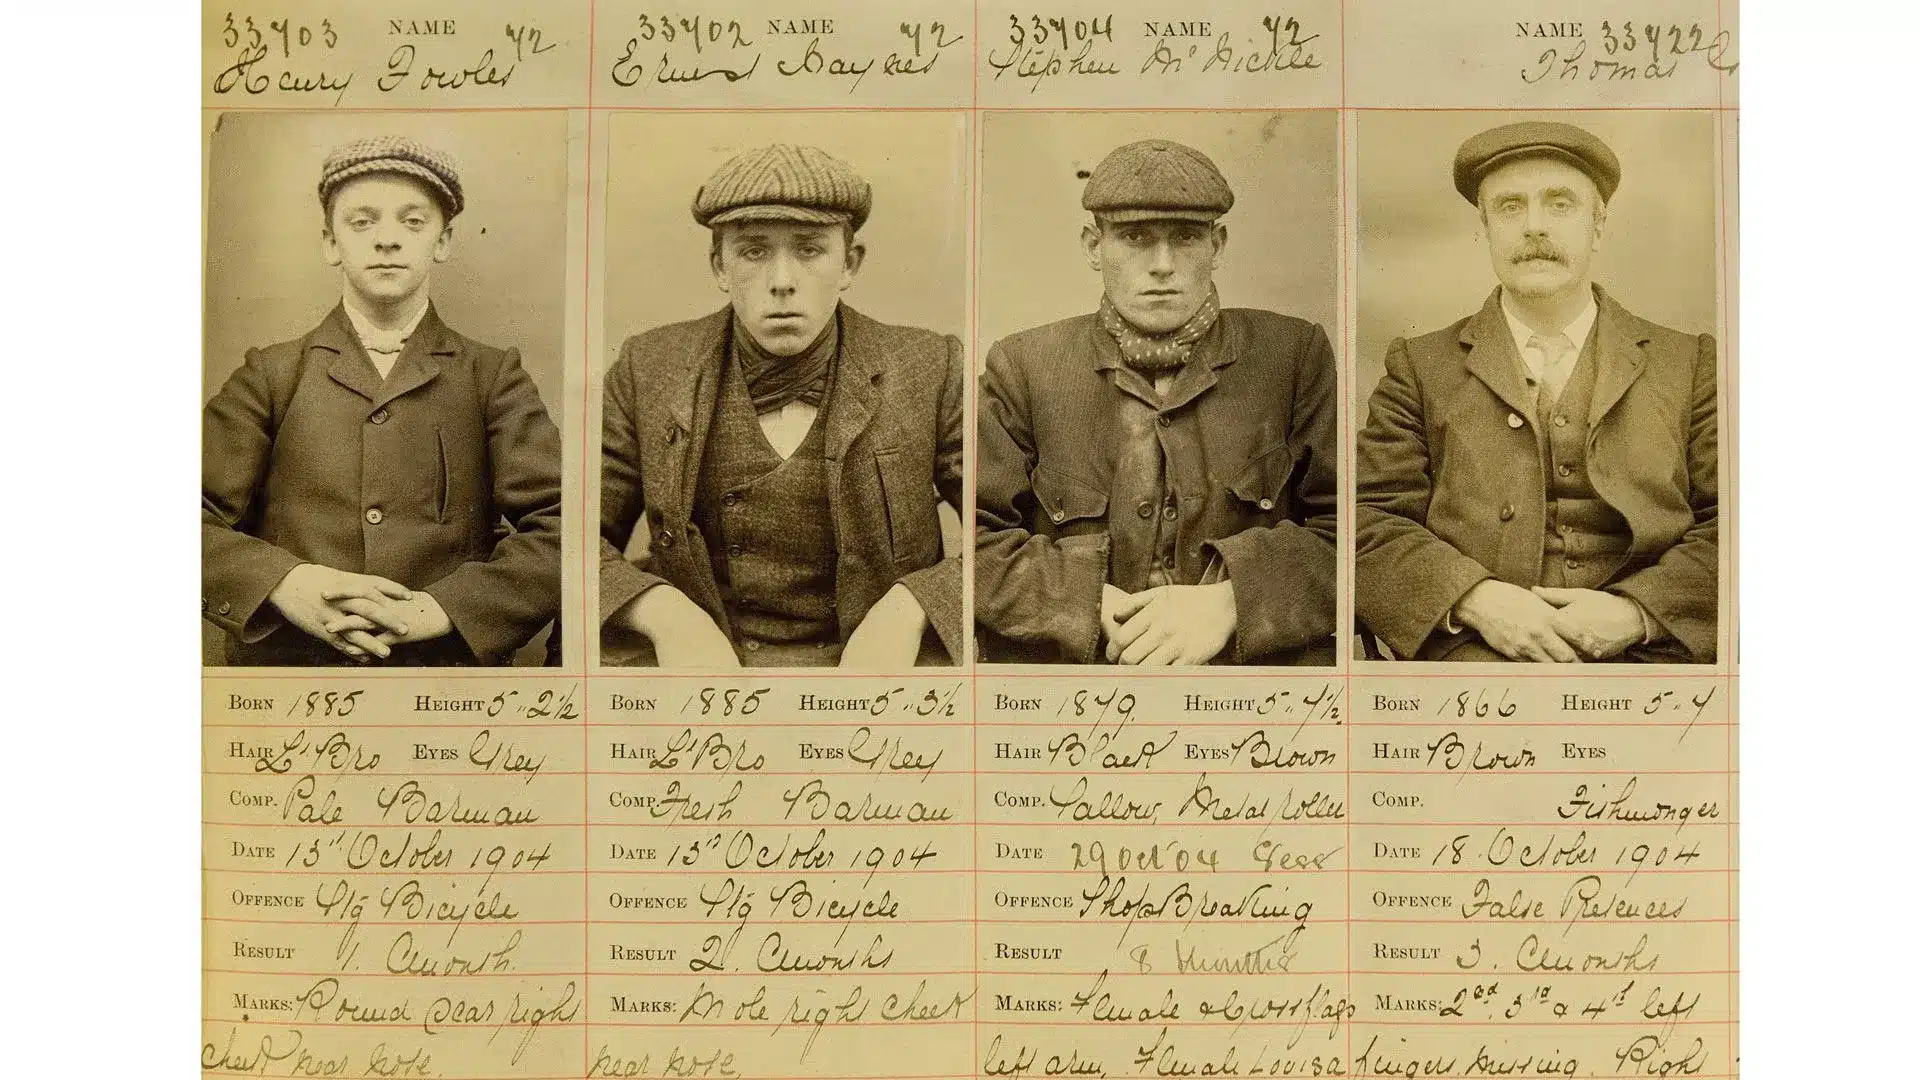 33703 NAME 72
Henry Fowles
BORN 1885 HEIGHT 5 .. 2½
HAIR Lt Bro EYES Grey
COMP. Pale Barman
DATE 13th October 1904
OFFENCE Stg Bicycle
RESULT 1. Cmonth.
MARKS: Round Scar right
cheek near nose.
33702 NAME 72
Ernest Haynes
BORN 1885 HEIGHT 5 .. 3½
HAIR Lt Bro EYES Grey
COMP. Fresh Barman
DATE 13th October 1904
OFFENCE Stg Bicycle
RESULT 2. Cmonths
MARKS: Mole right cheek
near nose.
33704 NAME 72
Stephen
BORN 1879. HEIGHT 5 .. 7½.
HAIR Black EYES Brown
COMP. Sallow, Metal roller
DATE 29 Oct 04 Sess
OFFENCE ShopBreaking
RESULT 8 Months
MARKS: Female & Crossflags
left arm, Female Louisa
NAME 33722
Thomas
BORN 1866 HEIGHT 5 .. 7
HAIR Brown EYES
COMP. Fishmonger
DATE 18. October 1904
OFFENCE False Pretences
RESULT 3. Cmonths
MARKS: 2nd, 3rd & 4th left
fingers missing. Right